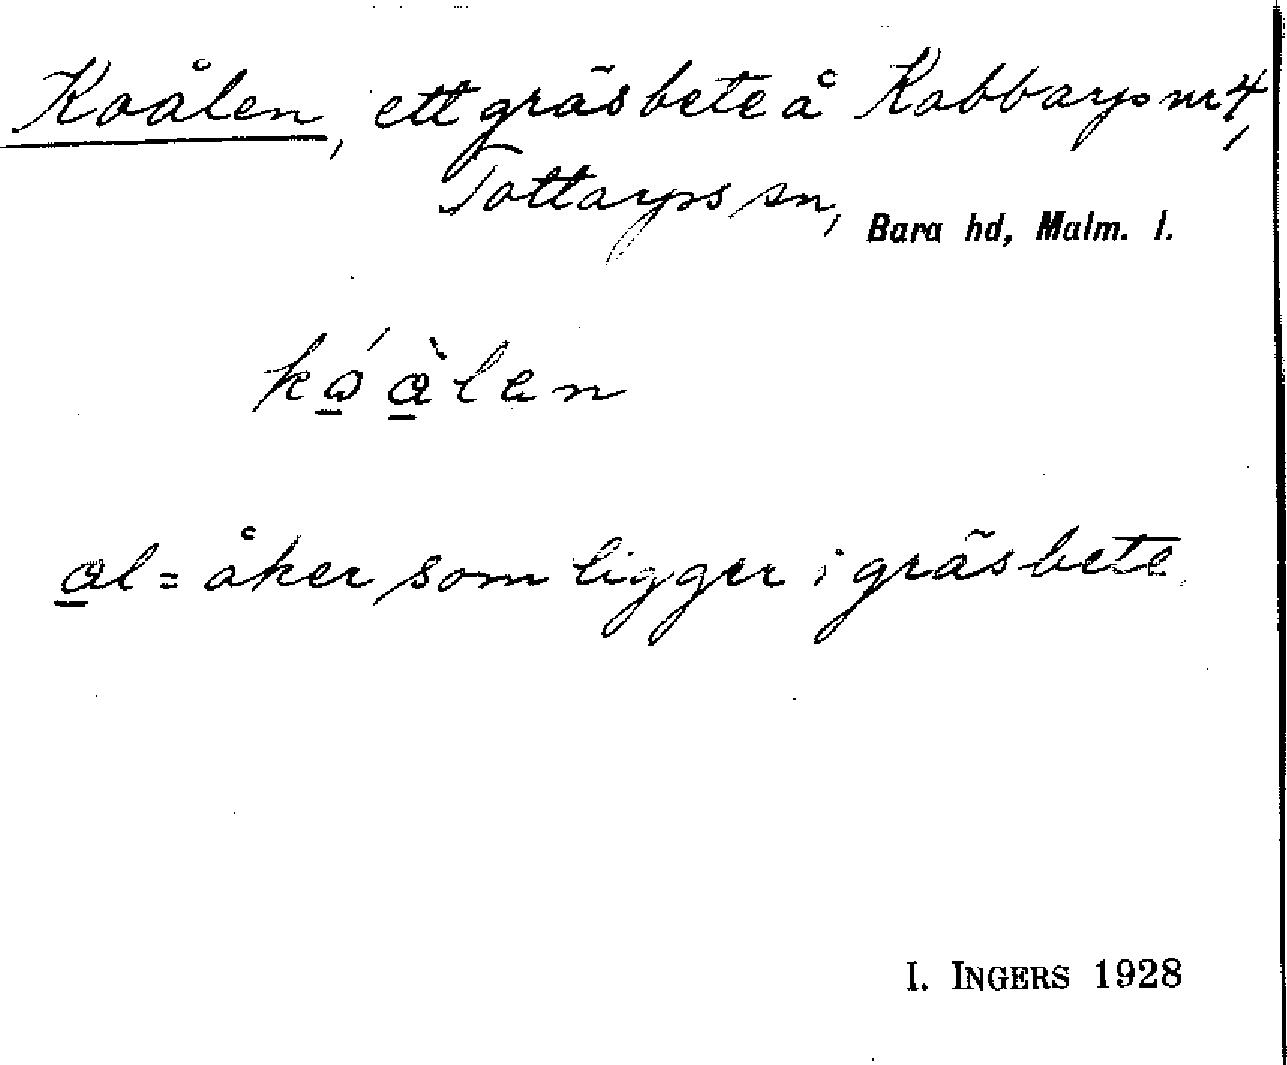 Koålen, ett gräsbete å Kabbarp nr 4,
Tottarps sn, Bara hd, Malm. l.
kǫ́ ą̀len
ąl = åker som ligger i gräsbete
I. INGERS 1928